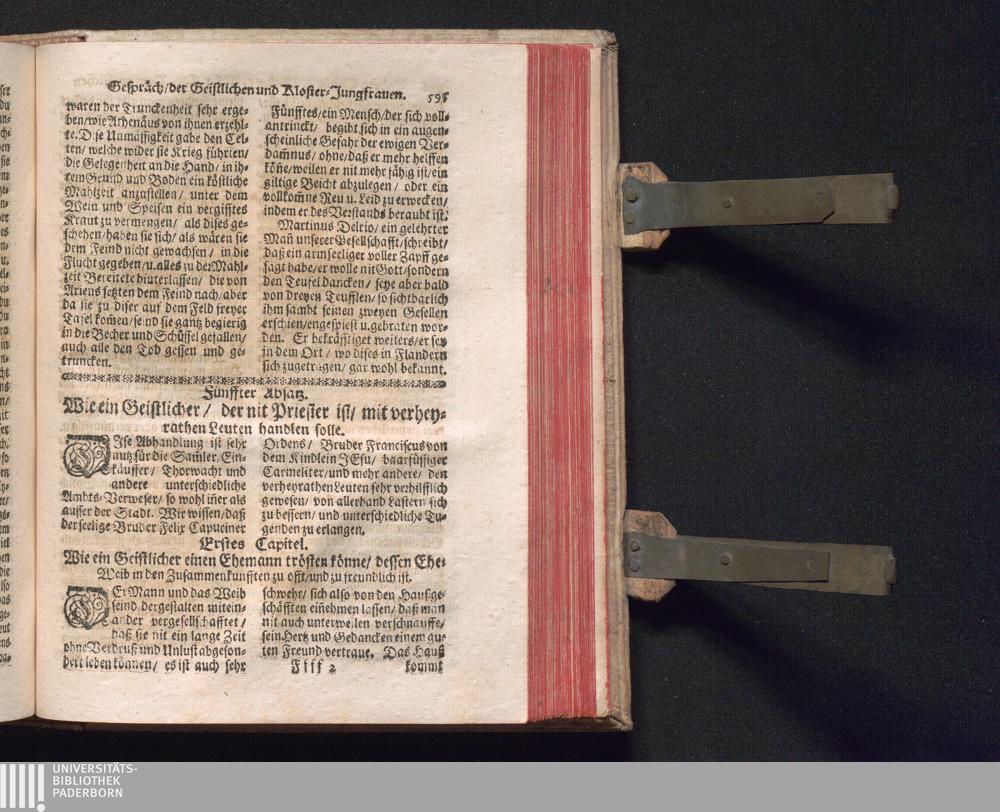 Gespräch/der Geistlichen und Kloster-Jungfrauen. 595
waren der Trunckenheit sehr erge-
ben/wie Athenäus von ihnen erzehl-
te. Dise Unmässigkeit gabe den Cel-
ten/ welche wider sie Krieg führten/
die Gelegenheit an die Hand/ in ih-
rem Grund und Boden ein köstliche
Mahlzeit anzustellen/ unter dem
Wein und Speisen ein vergifftes
Kraut zu vermengen/ als dises ge-
schehen/haben sie sich/ als wären sie
dem Feind nicht gewachsen/ in die
Flucht gegeben/u.alles zu der Mahl-
zeit Bereitete hinterlassen/ die von
Ariens setzten dem Feind nach/aber
da sie zu diser auf dem Feld freyer
Tafel kom̃en/seind sie gantz begierig
in die Becher und Schüssel gefallen/
auch alle den Tod gessen und ge-
truncken.
Fünfftes/ein Mensch/der sich voll-
antrinckt/ begibt sich in ein augen-
scheinliche Gefahr der ewigen Ver-
dam̃nus/ ohne/daß er mehr helffen
köñe/weilen er nit mehr fähig ist/ein
giltige Beicht abzulegen/ oder ein
vollkom̃ne Reu u. Leid zu erwecken/
indem er des Verstands beraubt ist.
Martinus Delrio/ ein gelehrter
Man̄ unserer Gesellschafft/schreibt/
daß ein armseeliger voller Zapff ge-
sagt habe/er wolle nit Gott/sondern
den Teufel dancken/ seye aber bald
von dreyen Teufflen/ so sichtbarlich
ihm sambt seinen zweyen Gesellen
erschien/engespiest u.gebraten wor-
den. Er bekräfftiget weiters/er sey
in dem Ort/ wo dises in Flandern
sich zugetragen/ gar wohl bekannt.
Fünffter Absatz.
Wie ein Geistlicher/ der nit Priester ist/ mit verhey-
rathen Leuten handlen solle.
DIse Abhandlung ist sehr
nutz für die Sam̃ler, Ein-
käuffer/ Thorwacht und
andere unterschiedliche
Ambts-Verweser/ so wohl in̄er als
ausser der Stadt. Wir wissen/daß
der seelige Bruder Felix Capuciner
Ordens/ Bruder Franciscus von
dem Kindlein JEsu/ baarfüssiger
Carmeliter/und mehr andere/ den
verheyrathen Leuten sehr verhilfflich
gewesen/ von allerhand Lastern sich
zu bessern/ und unterschiedliche Tu-
genden zu erlangen.
Erstes Capitel.
Wie ein Geistlicher einen Ehemann trösten könne/ dessen Ehe-
Weib in den Zusammenkunfften zu offt/und zu freundlich ist.
DEr Mann und das Weib
seind dergestalten mitein-
ander vergesellschafftet/
daß sie nit ein lange Zeit
ohne Verdruß und Unlust abgeson-
dert leben können/ es ist auch sehr
schwehr/ sich also von den Haußge-
schäfften ein̄ehmen lassen/ daß man
nit auch unterweilen verschnauffe/
sein Hertz und Gedancken einem gu-
ten Freund vertraue. Das Hauß
Ffff 2
kommt
UNIVERSITÄTS-
BIBLIOTHEK
PADERBORN